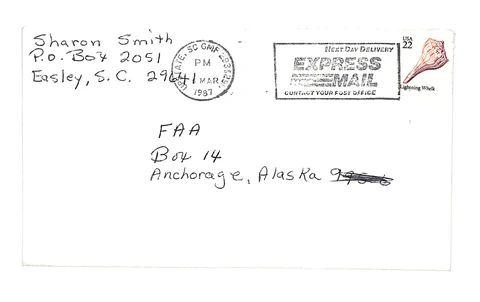 Sharon Smith
P.O. Box 2051
Easley, S.C. 29641
PM
MAR
1987
NEXT DAY DELIVERY
EXPRESS
MAIL
CONTACT YOUR POST OFFICE
USA
22
Lightning Whelk
FAA
Box 14
Anchorage, Alaska